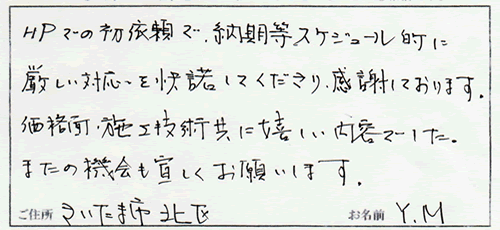 HPでの初依頼で、納期等スケジュール的に
厳しい対応を快諾してくださり、感謝しております。
価格面・施工技術共に嬉しい内容でした。
またの機会も宜しくお願いします。
ご住所 さいたま市北区 お名前 Y.M